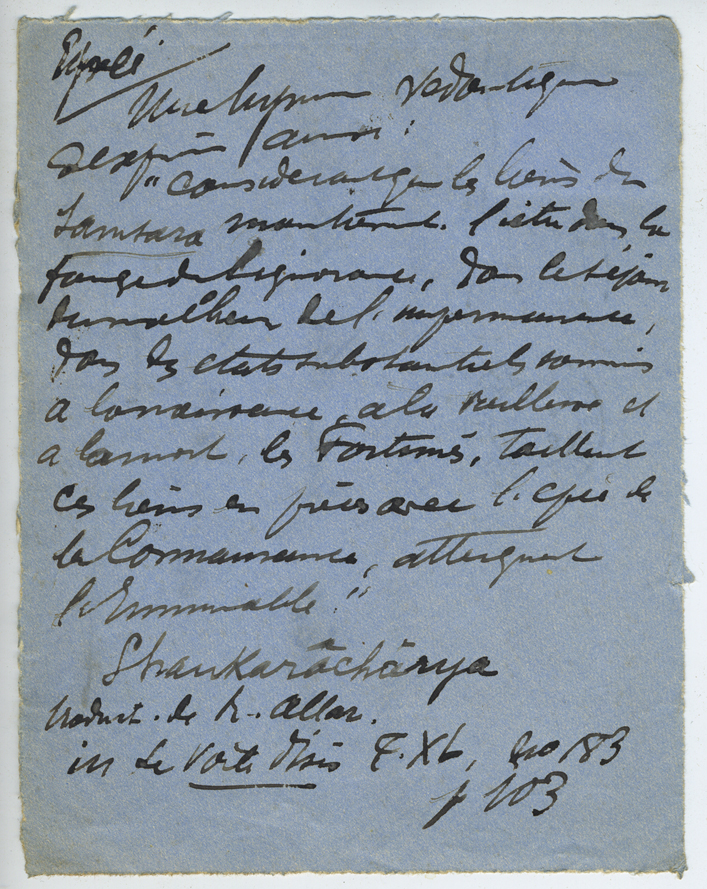 Une hymne vedantique
s'exprime ainsi:
"considerant que les liens du
Samsara maintiennent l'être dans la
fange de l'ignorance, dans le séjour
du malheur de l'impermanence,
dans des etats substantiels soumis
a la naissance, a la vieillesse et
a la mort, les Fortunés, taillant
ces liens en pièces avec l'épée de
la Connaissance, atteignent
l'Immuable!"
Shankarâchârya
traduct. de R. Allar.
in Le Voile d'Isis T. XL, no 183
p 103